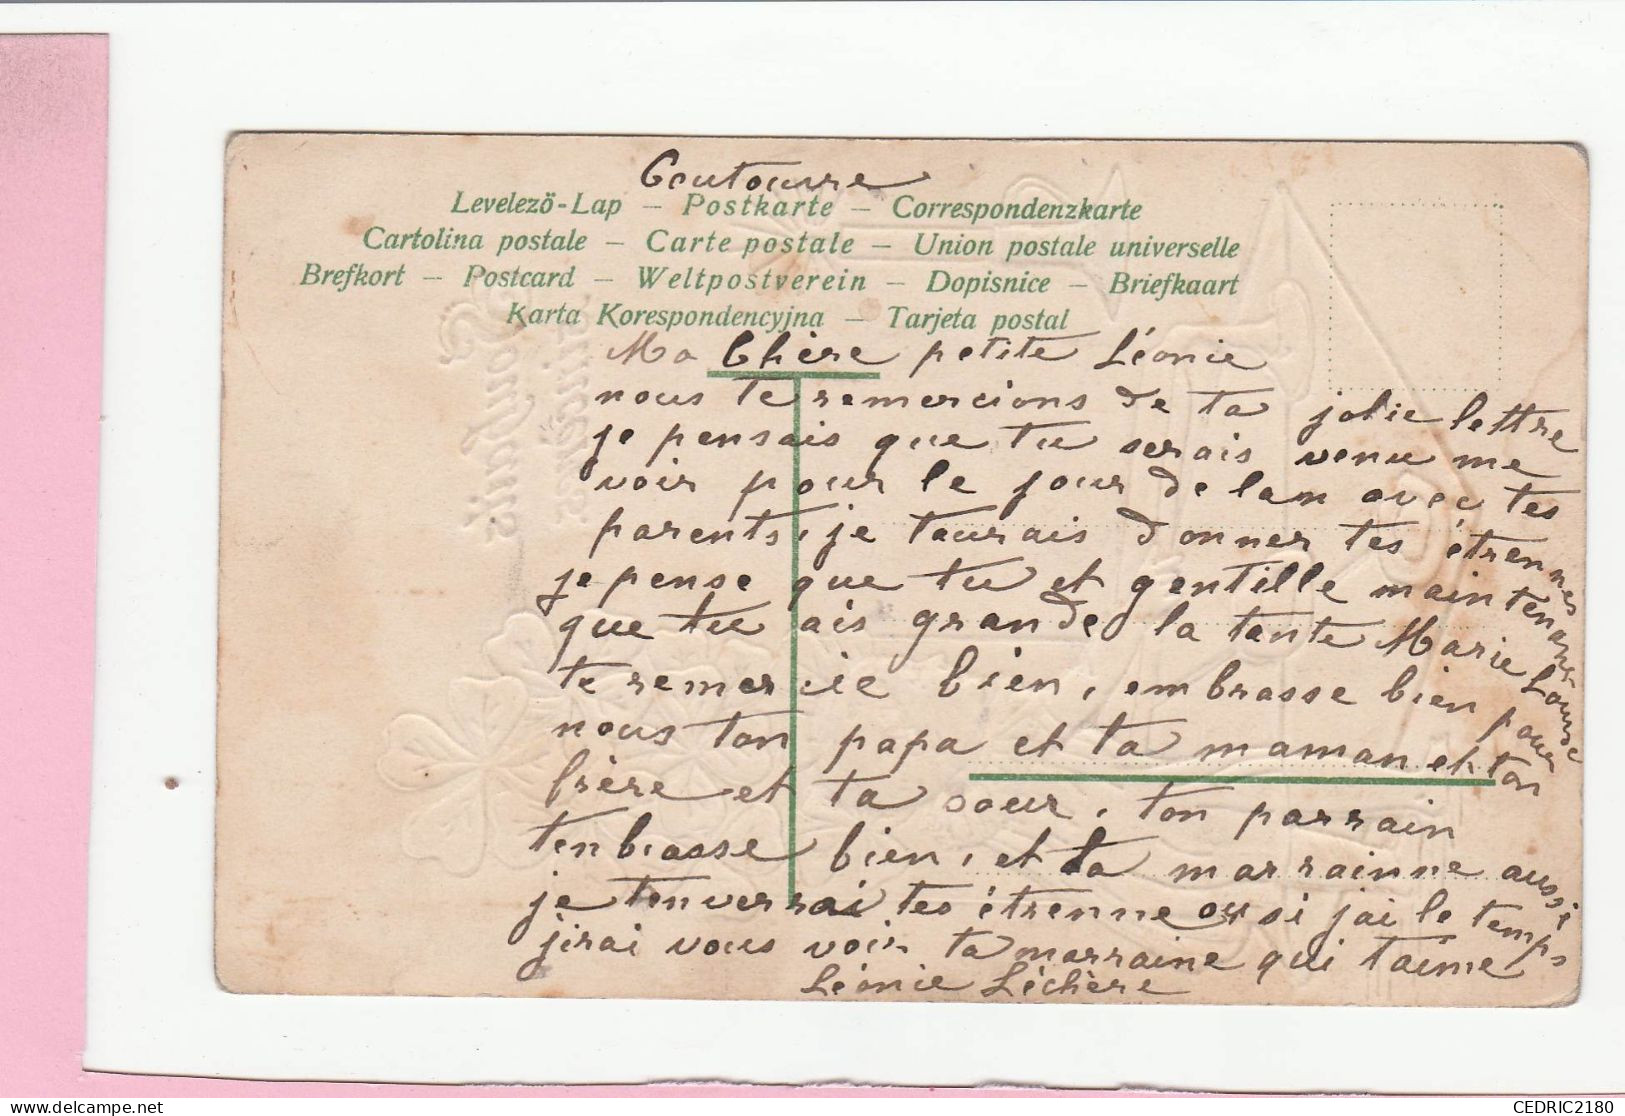 Coutouvre
Levelezö-Lap – Postkarte – Correspondenzkarte
Cartolina postale – Carte postale – Union postale universelle
Brefkort – Postcard – Weltpostverein – Dopisnice – Briefkaart
Karta Korespondencyjna – Tarjeta postal
Ma Chère petite Léonie
nous te remercions de ta jolie lettre
je pensais que tu serais venu me
voir pour le jour de lan avec tes
parents, je taurais donner tes étrennes
je pense que tu et gentille maintenant
que tu ais grande la tante Marie Louise
te remercie bien, embrasse bien pour
nous ton papa et ta maman et ton
frère et ta soeur, ton parrain
tenbrasse bien, et ta marrainne aussi
je tenverrai tes étrenne ou si jai le temps
jirai vous voir ta marraine qui taime
Léonie Léchère
CEDRIC2180